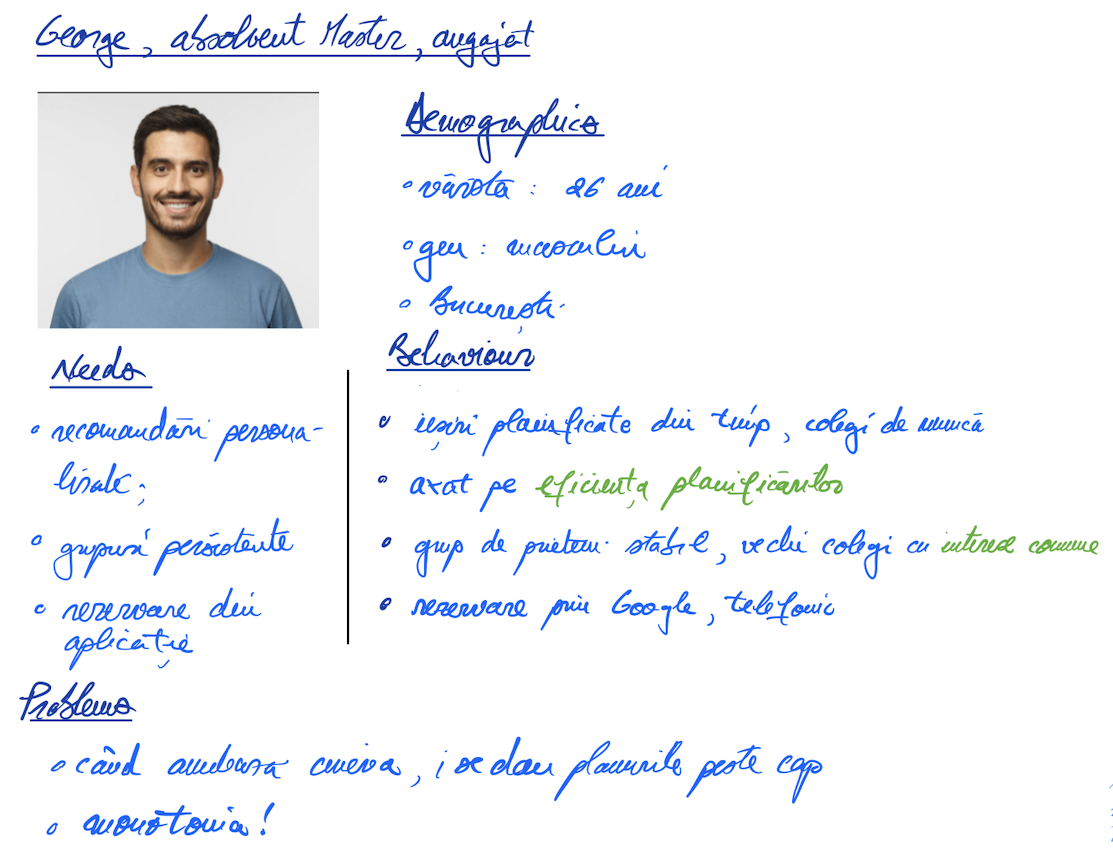 George, absolvent Master, angajat
Demographics
• vârsta : 26 ani
• gen : masculin
• București
Needs
• recomandări persona-
lizate;
• grupuri persistente
• rezervare din
aplicație
Behaviour
• ieșiri planificate din timp, colegi de muncă
• axat pe eficiența planificărilor
• grup de prieteni stabil, vechi colegi cu interese comune
• rezervare prin Google, telefonic
Problems
• când anulează cineva, i se dau planurile peste cap
• monotonia!